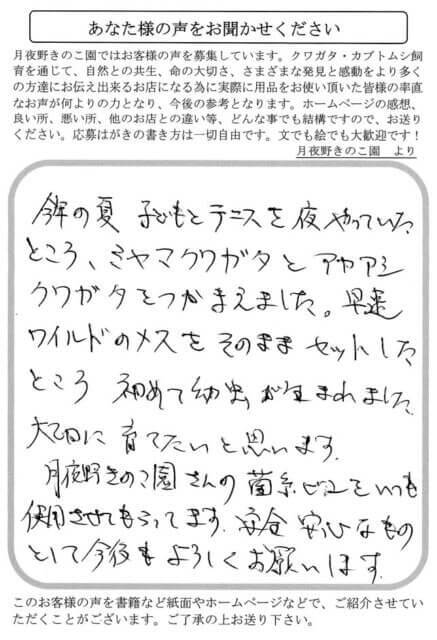 あなた様の声をお聞かせください
月夜野きのこ園ではお客様の声を募集しています。クワガタ・カブトムシ飼
育を通じて、自然との共生、命の大切さ、さまざまな発見と感動をより多く
の方達にお伝え出来るお店になる為に実際に用品をお使い頂いた皆様の率直
なお声が何よりの力となり、今後の参考となります。ホームページの感想、
良い所、悪い所、他のお店との違い等、どんな事でも結構ですので、お送り
ください。応募はがきの書き方は一切自由です。文でも絵でも大歓迎です！
月夜野きのこ園　より
今年の夏 子どもとテニスを夜やっていた
ところ、ミヤマクワガタと アカアシ
クワガタをつかまえました。早速
ワイルドのメスをそのままセットした
ところ 初めて幼虫が生まれました
大切に育てたいと思います。
月夜野きのこ園さんの菌糸ビンをいつも
使用させてもらってます。安全 安心なもの
として今後もよろしくお願いします
このお客様の声を書籍など紙面やホームページなどで、ご紹介させてい
ただくことがございます。ご了承の上お送り下さい。